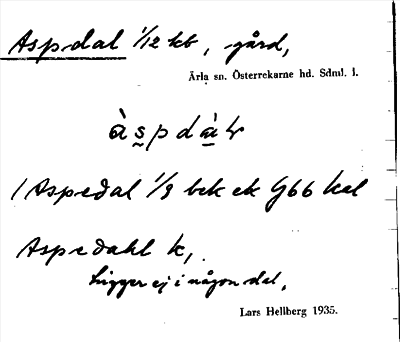 Aspdal 1/12 kb, gård,
Ärla sn. Österrekarne hd. Sdml. l.
àspdàɫ
Aspedal 1/3 bek ek G66 kal
Aspedahl k,
ligger ej i någon dal.
Lars Hellberg 1935.